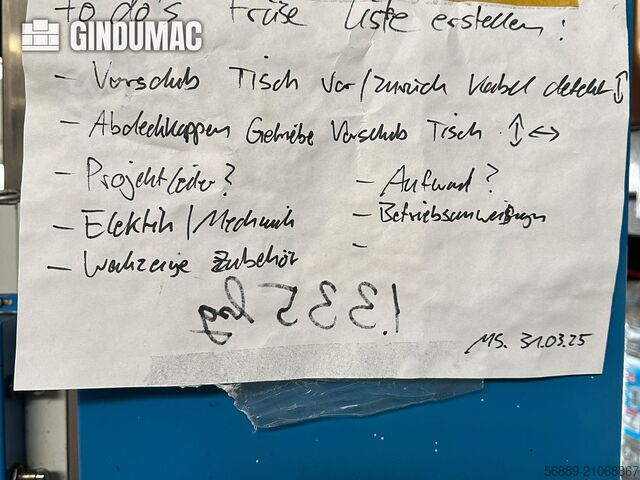 to do's Fräse Liste erstellen!
GINDUMAC
- Vorschub Tisch Vor/zurück Kabel defekt ↕
- Abdeckkappen Getriebe Vorschub Tisch ↕ ↔
- Projektleiter?
- Aufwand?
- Elektrik/Mechanik
- Betriebsanweisungen
- Werkzeuge Zubehör
-
1.335 kg
MS. 31.03.25
56889-21068367